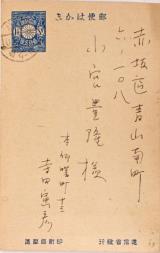 郵便はかき
赤坂區青山南町
六ノ一〇八
小宮豊隆様
本郷曙町十三
寺田寅彦
印刷局製造
逓信省發行